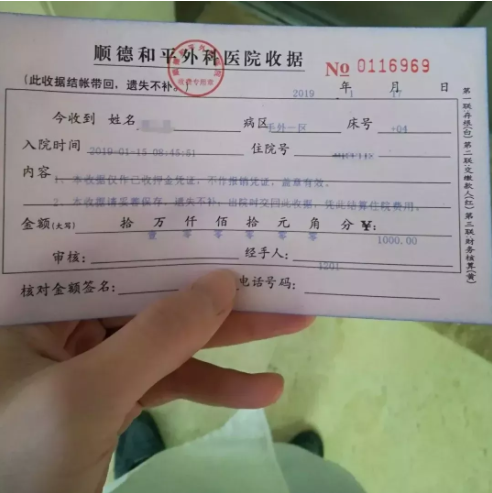 顺德和平外科医院收据
№ 0116969
(此收据结帐带回，遗失不补。)
2019 年 1 月 17 日
今收到 姓名 病区 手外一区 床号 +04
入院时间 2019-01-15 08:45:51 住院号
内容 1、本收据仅作已收押金凭证，不作报销凭证，盖章有效。
2、本收据请妥善保存，遗失不补，出院时交回此收据，凭此结算住院费用。
金额(大写) 拾 万 仟 佰 拾 元 角 分 ¥: 1000.00
壹 零 零 零 零 零
审核: 经手人: 1201
核对金额签名: 电话号码:
第一联存根(白) 第二联交缴款人(红) 第三联财务核算(黄)